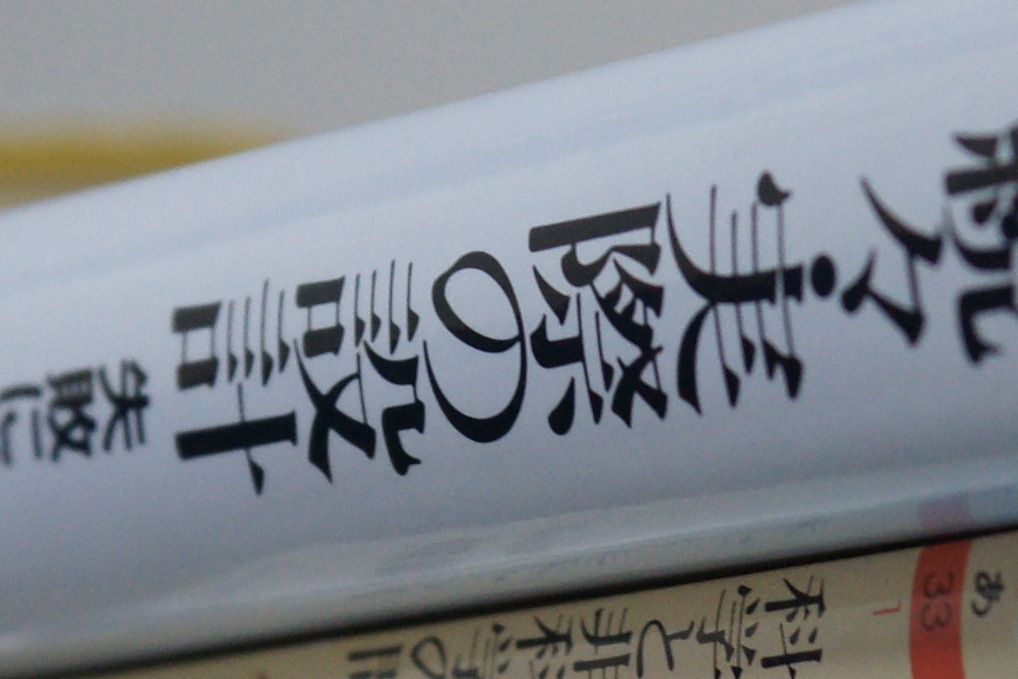 続々・実際の設計
失敗に
科学と非科学の
あ
33
1